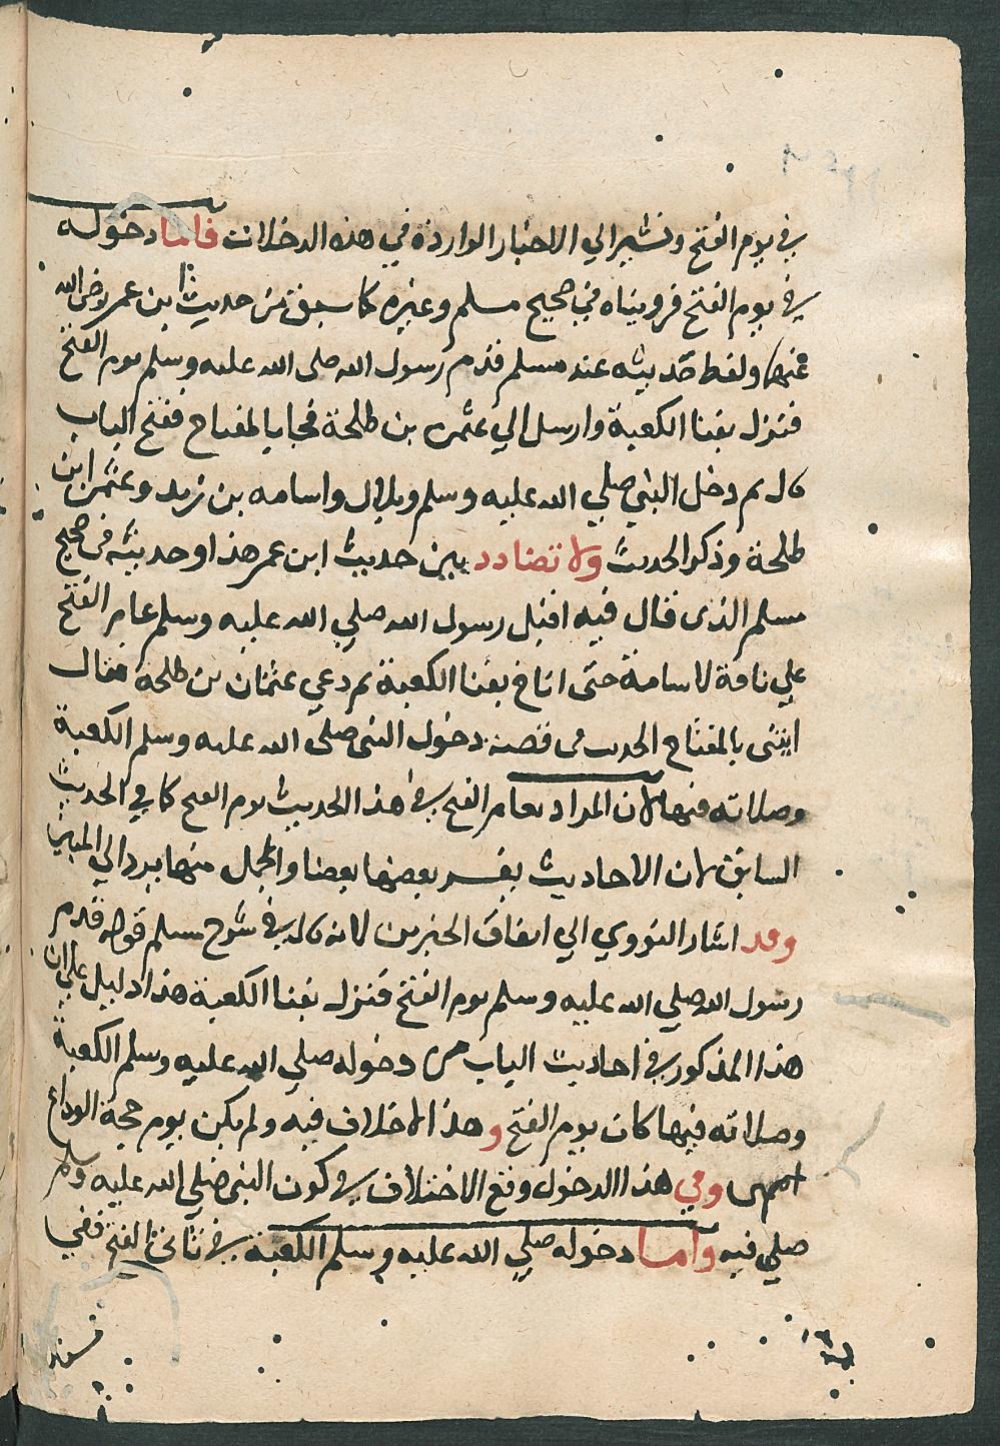 في يوم الفتح ونشير الي الاخبار الواردة في هذه الدخلات فاما دخوله
في يوم الفتح فرويناه في صحيح مسلم وغيره كما سبق من حديث ابن عمر رضي الله
عنهما ولفظ حديثه عند مسلم قدم رسول الله صلى الله عليه وسلم يوم الفتح
فنزل بفنا الكعبة وارسل الي عثمن بن طلحة فجا بالمفتاح ففتح الباب
قال ثم دخل النبي صلي الله عليه وسلم وبلال واسامه بن زيد وعثمن ابن
طلحة وذكر الحديث ولا تضادد بين حديث ابن عمر هذا وحديثه في صحيح
مسلم الذى قال فيه اقبل رسول الله صلي الله عليه وسلم عام الفتح
علي ناقة لاسامة حتى اناخ بفنا الكعبة ثم دعي عثمان بن طلحة فقال
ايتنى بالمفتاح الحديث في قصة دخول النبي صلى الله عليه وسلم الكعبة
وصلاته فيها لان المراد بعام الفتح في هذا الحديث يوم الفتح كما في الحديث
السابق لان الاحاديث يفسر بعضها بعضا والمجمل منها يرد الي المبين
وقد اشار النووي الي اتفاق الخبرين لانه قال في شرح مسلم قوله قدم
رسول الله صلي الله عليه وسلم يوم الفتح فنزل بفنا الكعبة هذا دليل علي ان
هذا المذكور في احاديث الباب من دخوله صلي الله عليه وسلم الكعبة
وصلاته فيها كان يوم الفتح وهذا لا خلاف فيه ولم يكن يوم حجة الوداع
انتهى وفي هذا الدخول وقع الاختلاف في كون النبي صلي الله عليه وسلم
صلي فيه واما دخوله صلي الله عليه وسلم الكعبة في ثاني الفتح ففي